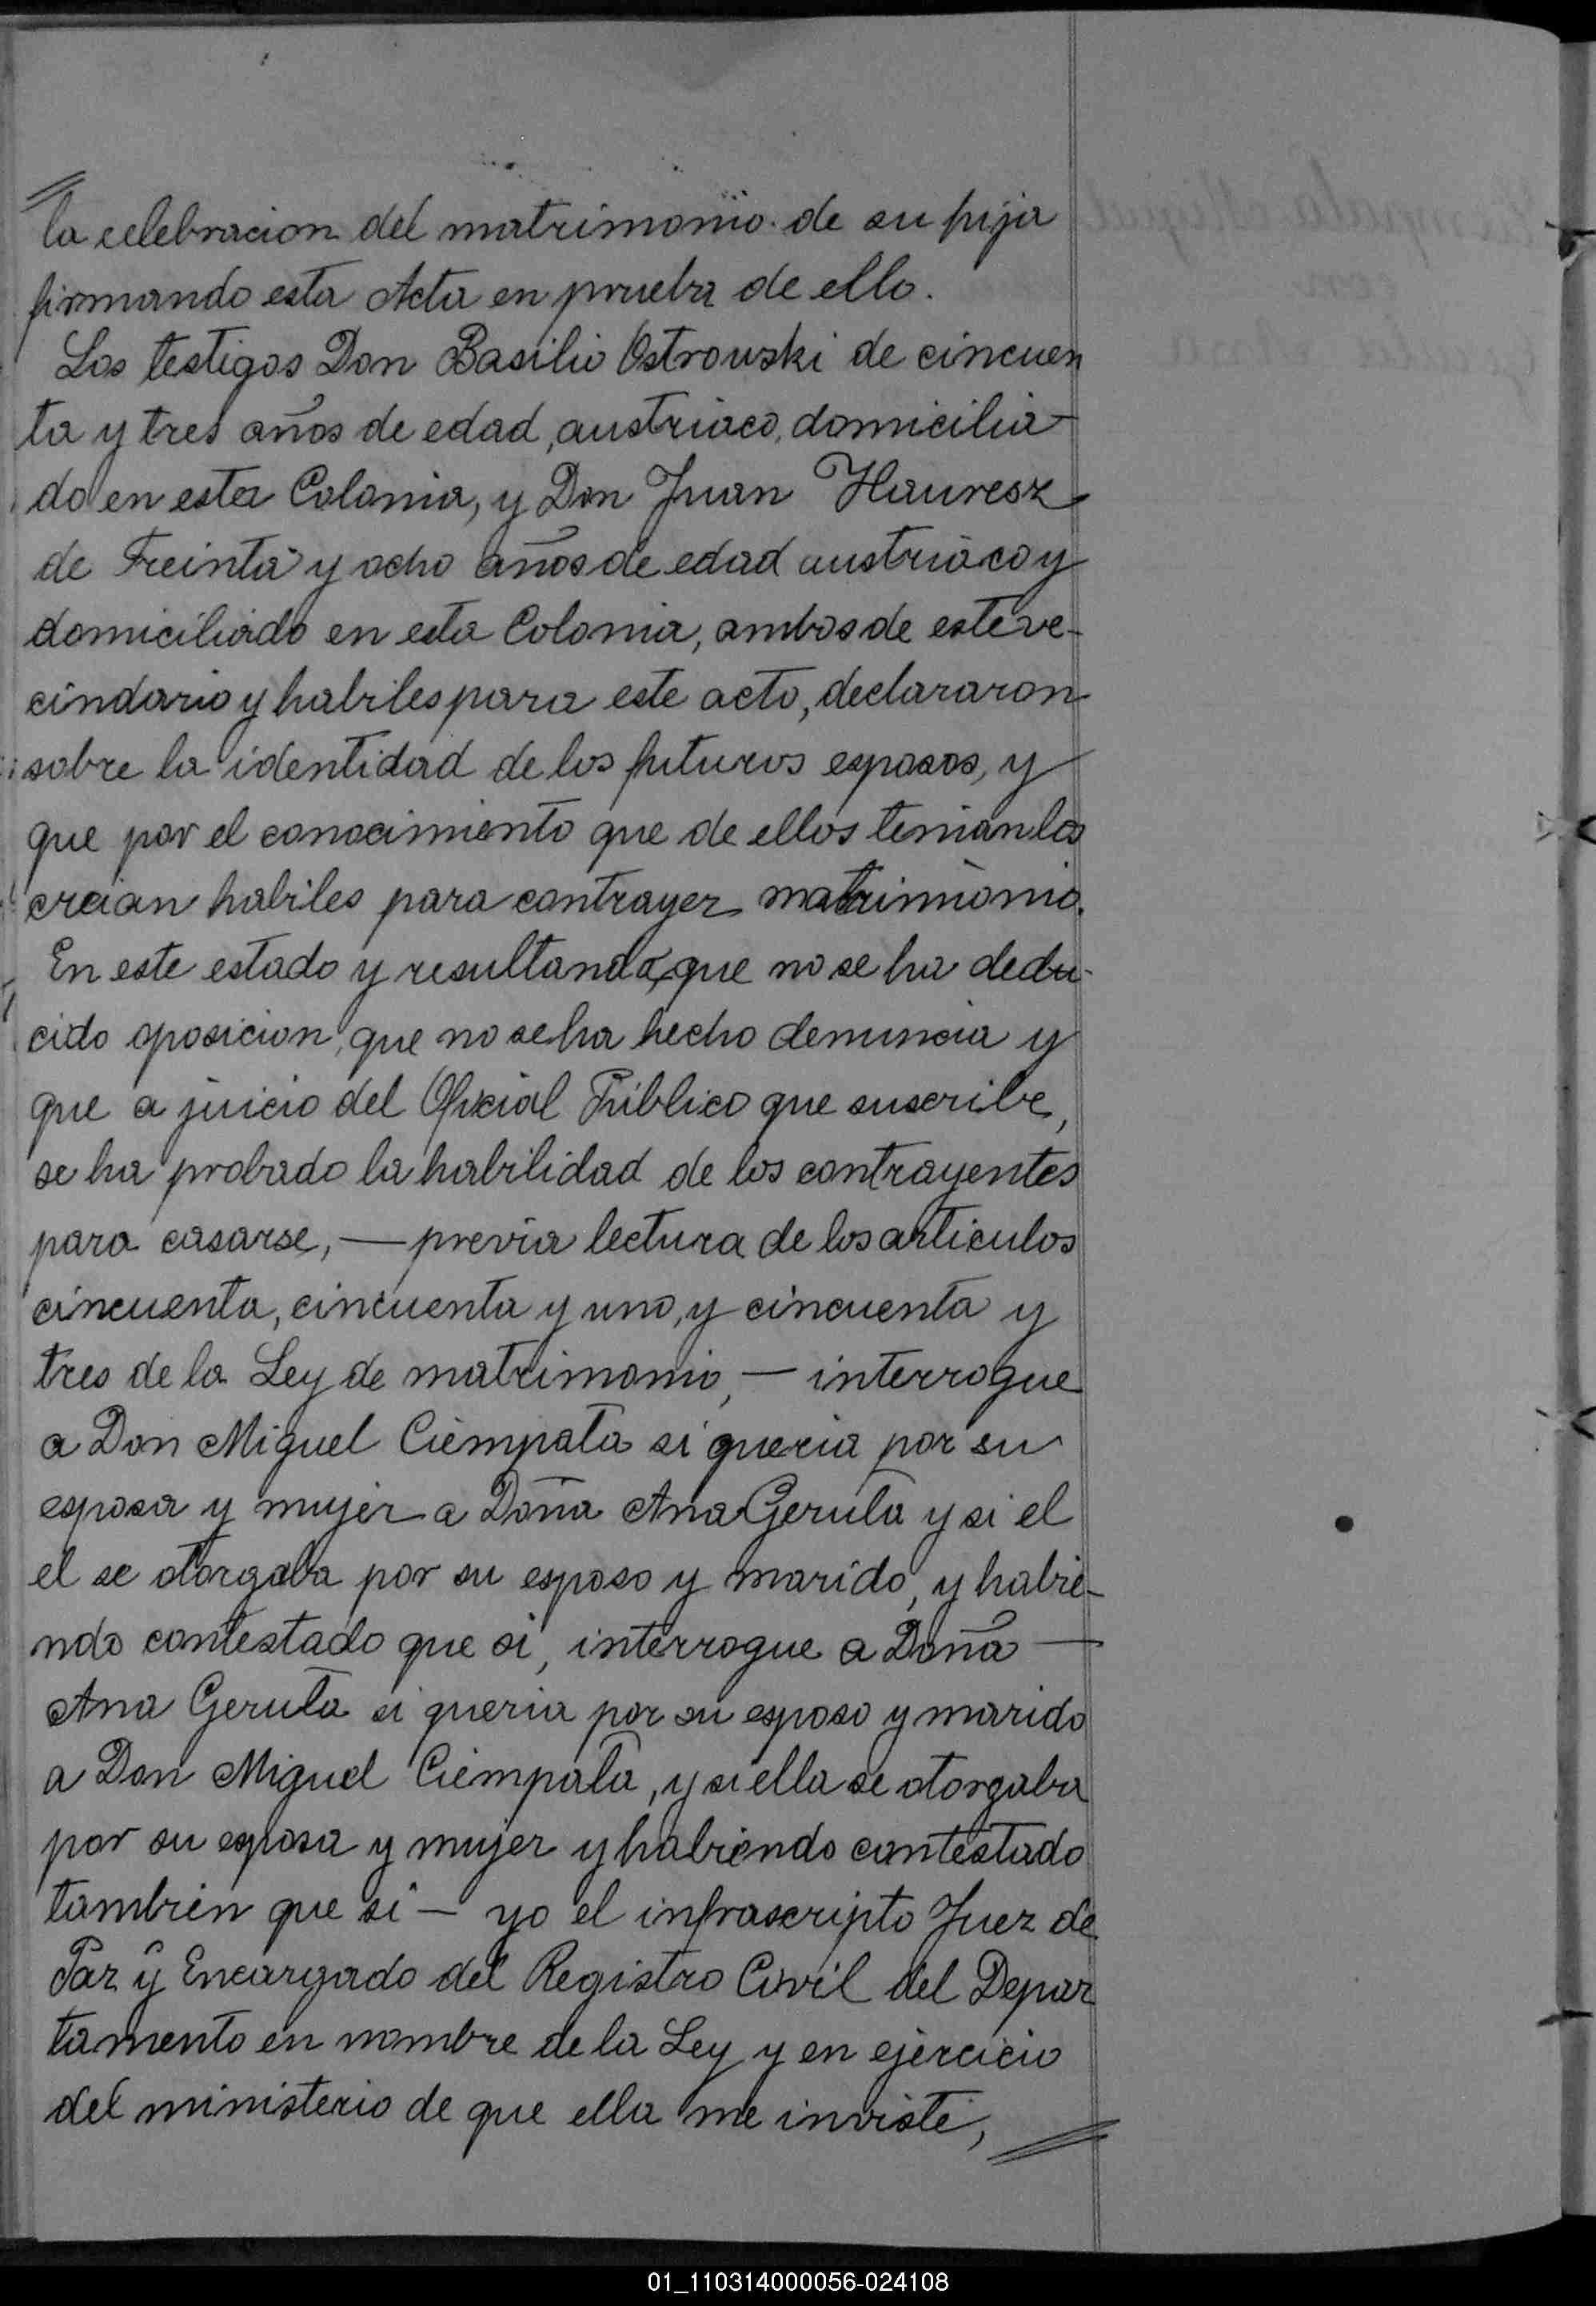 la celebracion del matrimonio de su hija
firmando esta Acta en prueba de ello.
Los testigos Don Basilio Ostrowski de cincuen
ta y tres años de edad, austriaco, domicilia-
do en esta Colonia, y Don Juan Hauresz
de Treinta y ocho años de edad austriaco y
domiciliado en esta Colonia, ambos de este ve-
cindario y habiles para este acto, declararon
sobre la identidad de los futuros esposos, y
que por el conocimiento que de ellos tenian los
creian habiles para contrayer matrimonio.
En este estado y resultando, que no se ha dedu-
cido oposicion, que no se ha hecho denuncia y
que a juicio del Oficial Público que suscribe,
se ha probado la habilidad de los contrayentes
para casarse, — previa lectura de los articulos
cincuenta, cincuenta y uno, y cincuenta y
tres de la Ley de matrimonio, — interrogue
a Don Miguel Ciempata si queria por su
esposa y mujer a Doña Ana Geruta y si el
el se otorgaba por su esposo y marido, y habie-
ndo contestado que si, interrogue a Doña —
Ana Geruta si queria por su esposo y marido
a Don Miguel Ciempata, y si ella se otorgaba
por su esposa y mujer y habiendo contestado
tambien que si — yo el infrascripto Juez de
Paz y Encargado del Registro Civil del Depar
tamento en nombre de la Ley y en ejercicio
del ministerio de que ella me inviste,
01_110314000056-024108